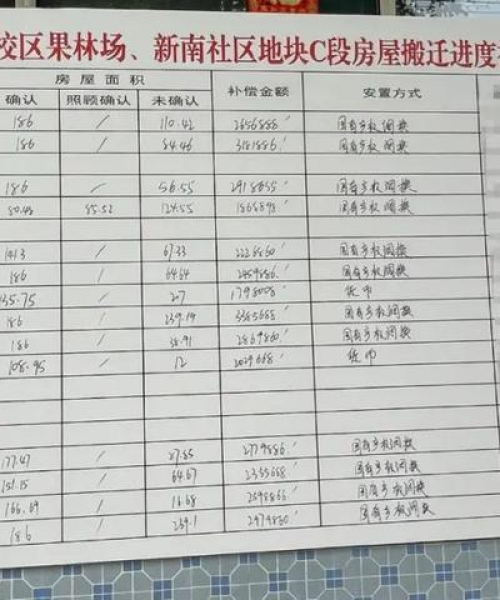 校区果林场、新南社区地块C段房屋搬迁进度
房屋面积 补偿金额 安置方式
确认 照顾确认 未确认
186 / 110.42 2656888 国有产权调换
186 / 84.46 3181886 国有产权调换
186 / 56.55 2918655 国有产权调换
80.48 85.52 124.55 1868898 国有产权调换
/ 67.33 2226860 国有产权调换
186 / 64.64 2459886 国有产权调换
135.75 / 207 1798008 货币
186 / 239.19 3385688 国有产权调换
186 / 38.91 2869860 国有产权调换
108.95 / 12 2029668 货币
177.47 / 27.85 2779886 国有产权调换
151.15 / 64.67 2355668 国有产权调换
166.69 / 16.68 2598866 国有产权调换
186 / 239.1 2974860 国有产权调换